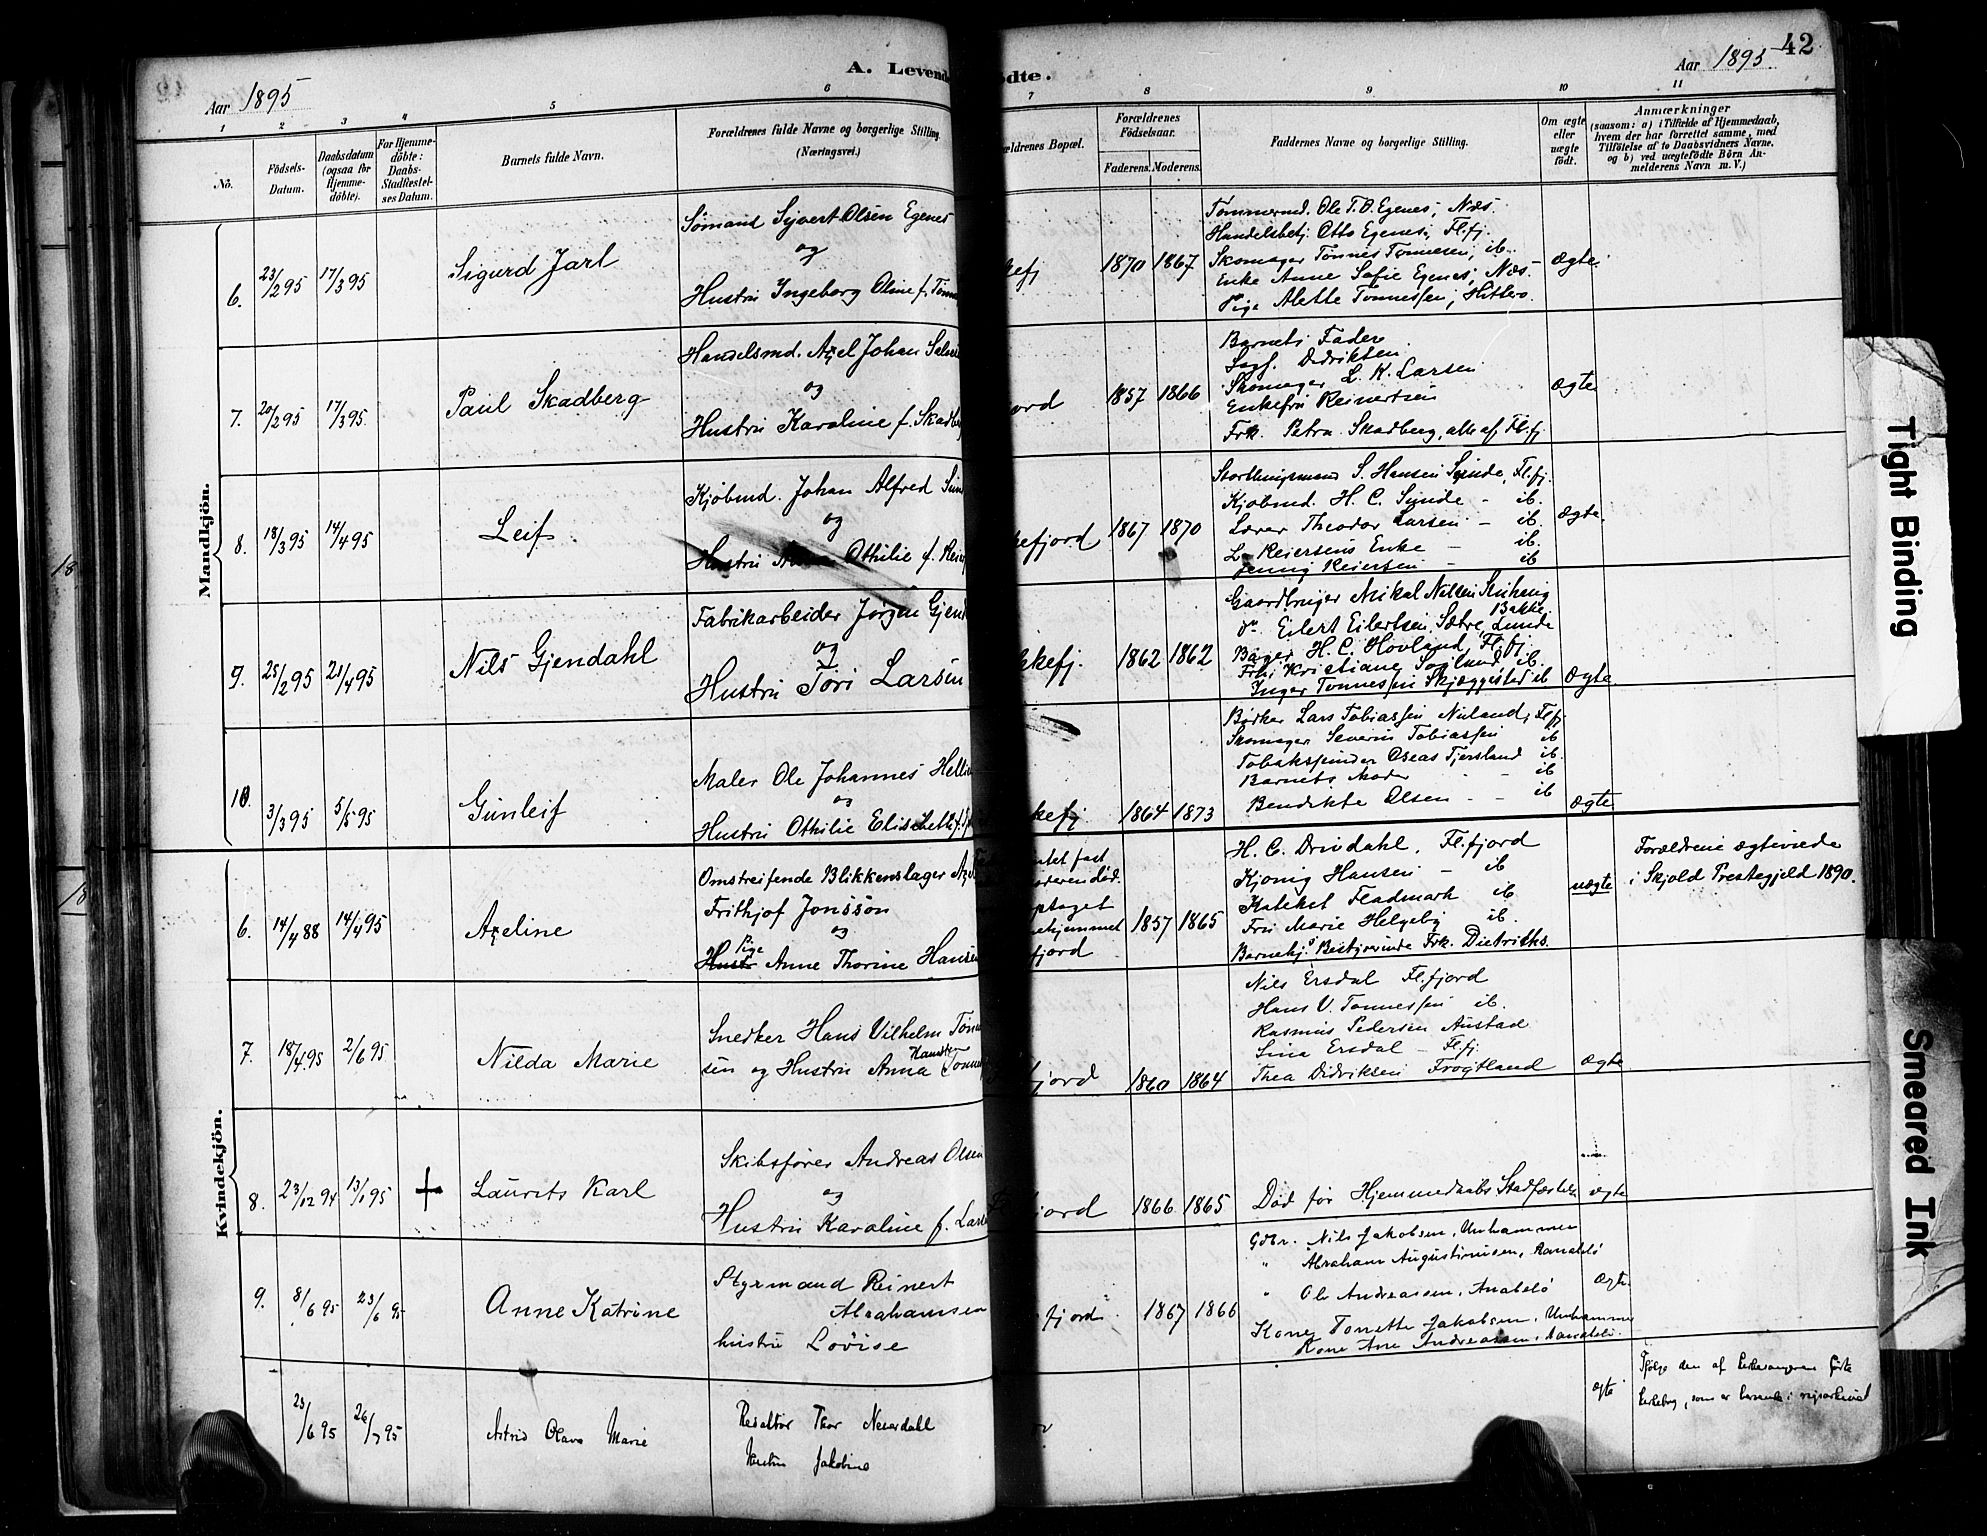 42
A. Levende
ødte.
Aar 1895
Aar 1895
1 2 3 4 5 6 7 8 9 10 11
No.
Födsels-
Datum.
Daabsdatum
(ogsaa for
Hjemme-
döbte).
For Hjemme-
döbte:
Daabs-
Stadfæstel-
ses Datum.
Barnets fulde Navn.
Forældrenes fulde Navne og borgerlige Stilling.
(Næringsvei.)
ældrenes Bopæl.
Forældrenes
Födselsaar.
Faderens. Moderens.
Faddernes Navne og borgerlige Stilling.
Om ægte
eller
uægte
födt.
Anmærkninger
(saasom: a) i Tilfælde af Hjemmedaab,
hvem der har forrettet samme, med
Tilföielse af to Daabsvidners Navne,
og b) ved uægtefödte Börn An-
melderens Navn m. V.)
Mandkjön.
6.
23/2 95
17/3 95
Sigurd Jarl
Sømand Syvert Olsen Egenes
og
Hustru Ingeborg Oline f. Tønn
kefj
1870 1867
Tømmermd. Ole T. O. Egenes, Næs.
Handelsbetj. Otto Egenes, Fl.fj.
Skomager Tønnes Tønnesen, ib.
Enke Anne Sofie Egenes, Næs.
Pige Alette Tønnessen, Hitterø.
ægte.
7.
20/2 95
17/3 95.
Paul Skadberg
Handelsmd. Axel Johan Salves
og
Hustru Karoline f. Skadbe
ord
1857 1866
Barnets Fader.
Sagf. Didriksen
Skomager L. K. Larsen
Enkefru Reinertsen
Frk. Petra Skadberg, alle af Fl.fj.
ægte
8.
18/3 95
14/4 95
Leif
Kjøbmd. Johan Alfred Sun
og
Hustru Othilie f. Reier
kefjord
1867 1870
Storthingsmand S. Hansen Sunde, Fl.fj.
Kjøbmd. H. C. Sunde - ib.
Lærer Theodor Larsen - ib.
L. Reiersens Enke - ib.
Jenny Reiersen - ib
ægte.
9.
25/2 95
21/4 95
Nils Gjendahl
Fabrikarbeider Jørgen Gjend
og
Hustru Tori Larsen
kkefj.
1862 1862
Gaardbruger Mikal Nilsen
Bakke.
do. Eilert Eilertsen, Sætre, Lunde
Bager H. C. Hovland, Fl.fj.
Kristiane ib.
Inger Tønnessen Skjæggestad ib
Ægte.
10.
3/3 95
5/5 95
Gunleif
Maler Ole Johannes Helli
og
Hustru Othilie Elisabeth f.
kefj
1864 1873
Bødker Lars Tobiassen Nuland, Fl.fj.
Skomager Severin Tobiassen ib
Tobakspinder Oseas Tjersland ib
Barnets Moder - - ib
Bendikte Olsen - - ib
ægte
Kvindekjön.
6.
14/4 88
14/4 95
Axeline
Omstreifende Blikkenslager Axel
Frithjof Jonsson
og
Pige
Hust. Anne Thorine Hansen
ntet fast
oderen død.
ptaget
ehjemmet
fjord
1857 1865
H. C. Drivdahl, Fl.fjord
Kjonig Hansen - ib
Katekst Fladmark ib
Fru Marie Helgeby ib.
Barnehj.s Bestyrerinde Frk. Dietrichs.
uægte
Forældrene ægteviede
i Skjold Prestegjeld 1890.
7.
18/4 95
2/6 95
Nilda Marie
Snedker Hans Vilhelm Tønne
sen og Hustru Anna Tønne
fjord
1860 1864
Nils Ersdal Fl.fjord
Hans V. Tønnessen ib.
Rasmus Pedersen Austad
Sina Ersdal - Fl.fj.
Thea Didriksen Frøytland
ægte
8.
23/12 94
13/1 95
+
Laurits Karl
Skibsfører Andreas Olsen
og
Hustru Karoline f. Lars
jord
1866 1865
Død før Hjemmedaabs Stadfæstelse
ægte
9.
8/6 95
23/6 95
Anne Katrine
Styrmand Reinert
Abrahamsen
hustru Lovise
fjord
1867 1866
Gdbr. Nils Jakobsen, Urnhammer
" Abraham Augustinusen, Aanabelø
" Ole Andreassen, Anabelø
Kone Tonette Jakobsen, Urnhammer
Kone Ane Andreassen, Aanabelø.
Ægte
23/6 95
26/7 95
Astrid Olava Marie
Redaktør Thor Neverdahl
Hustru Jakobine
ægte
Ifølge den af kirkesangeren førte
kirkebog, som er beroende i rigsarkivet
18
18
Tight Binding
Smeared Ink